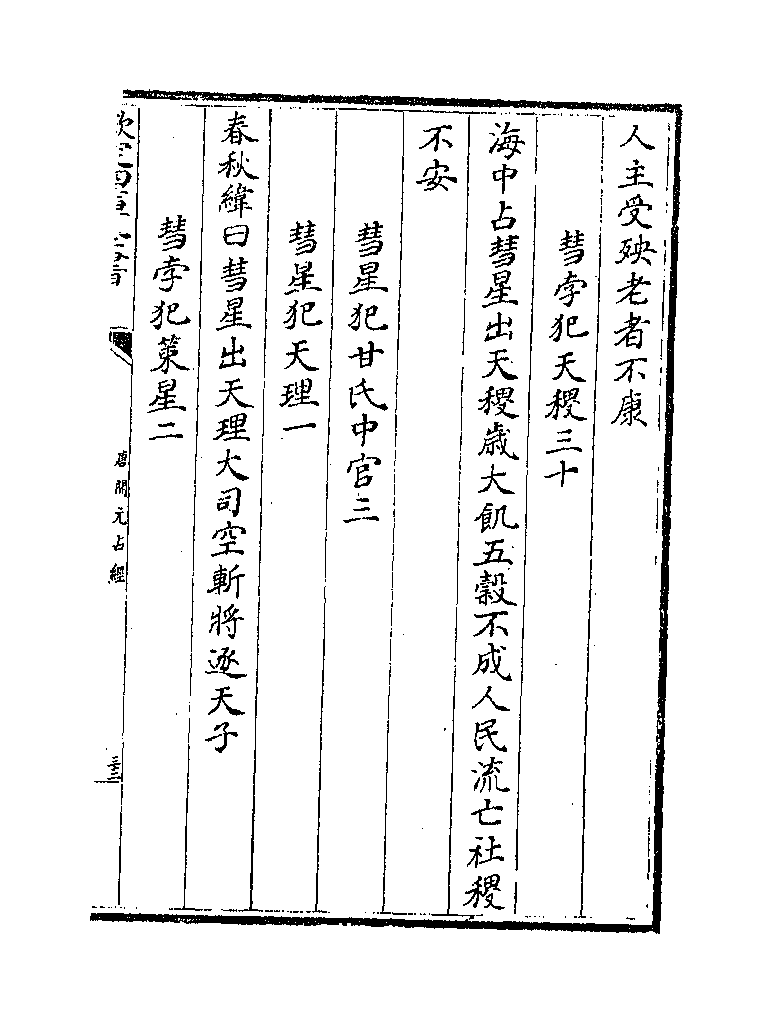 人主受殃老者不康
彗孛犯天稷三十
海中占彗星出天稷歳大飢五穀不成人民流亡社稷
不安
彗星犯甘氏中官三
彗星犯天理一
春秋緯曰彗星出天理大司空斬將逐天子
彗孛犯策星二
欽定四庫全書
唐開元占經
三十三